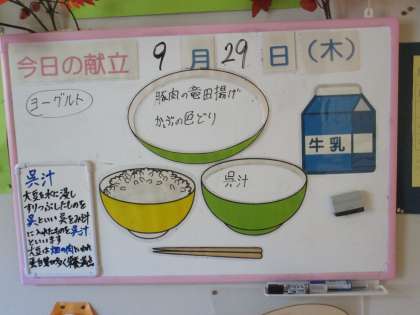 今日の献立 9月29日(木)
ヨーグルト
豚肉の竜田揚げ
かぶの色どり
牛乳
呉汁
呉汁
大豆を水に浸し
すりつぶしたものを
呉といい呉をみそ汁
に入れたものを呉汁
といいます
大豆は畑の肉といわれ